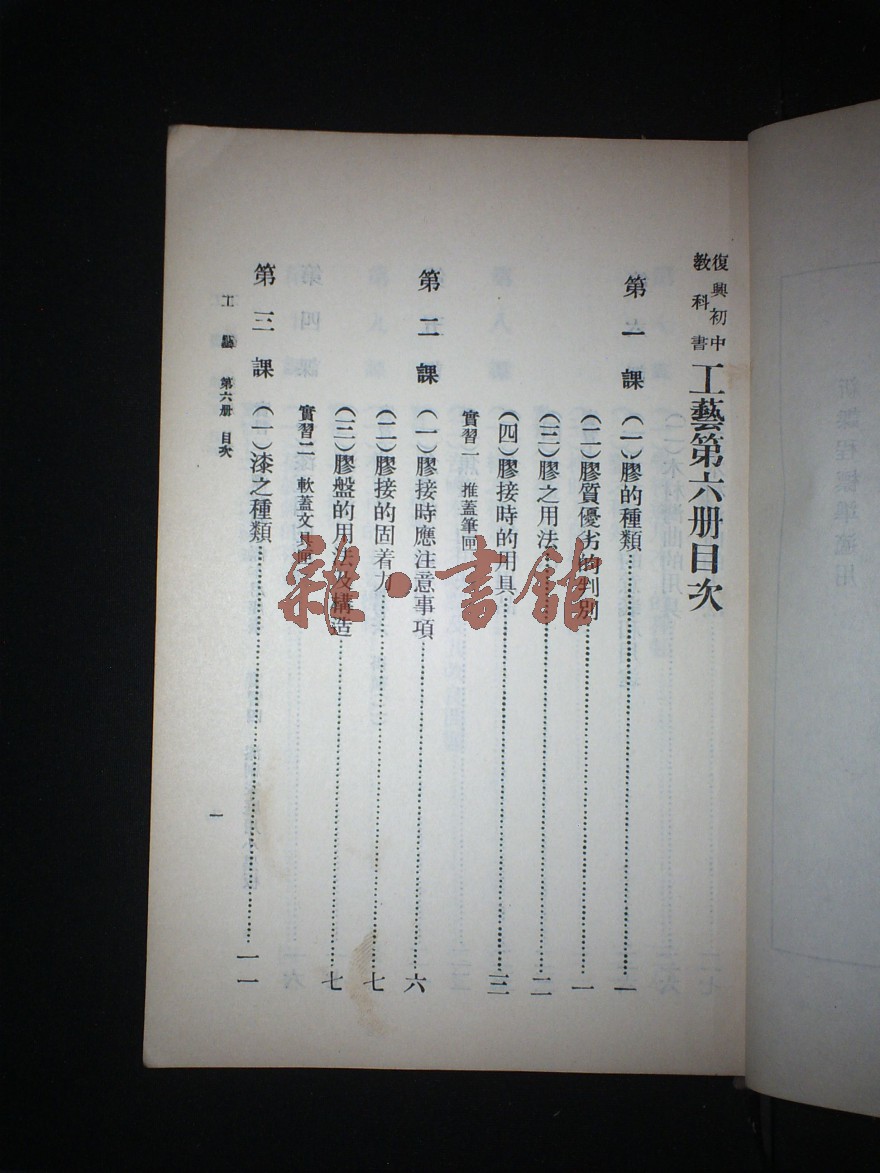 復興初中
教科書
工藝第六册目次
第一課 (一)膠的種類……一
(二)膠質優劣的判別……一
(三)膠之用法……二
(四)膠接時的用具……三
實習一 推蓋筆匣
第二課 (一)膠接時應注意事項……六
(二)膠接的固着力……七
(三)膠盤的用法及構造……七
實習二 軟蓋文具匣
第三課 (一)漆之種類……一一
工藝 第六册 目次
一
雜·書館
新課程標準適用